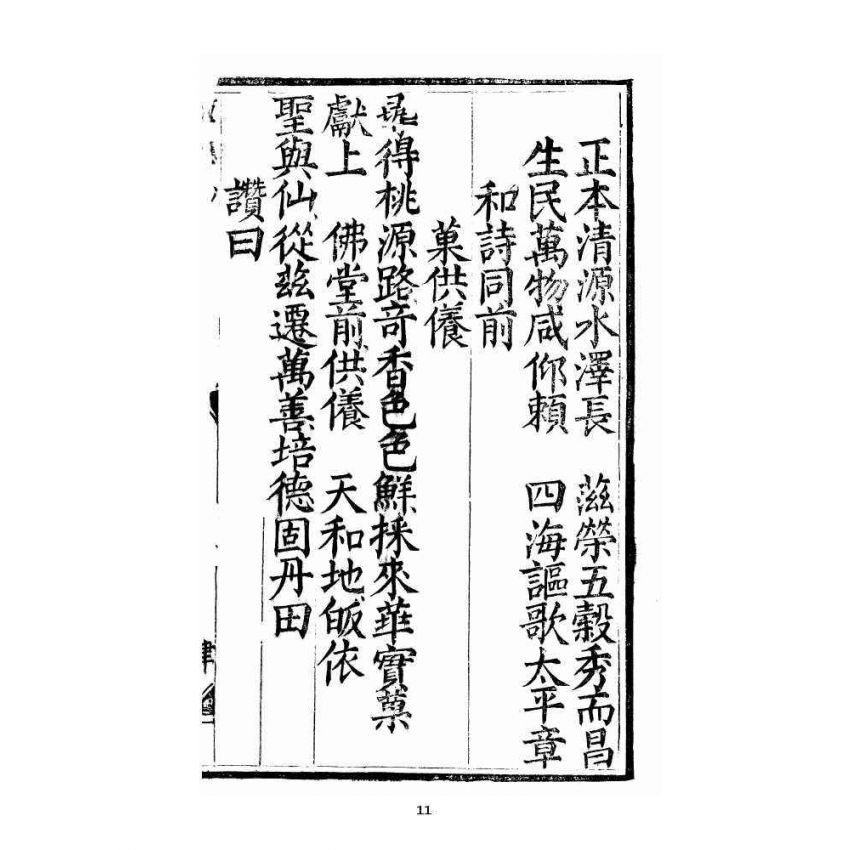 正本清源水澤長　滋榮五穀秀而昌
生民萬物咸仰賴　四海謳歌太平章
和詩同前
菓供儀
得桃源路奇香色色鮮採來華實菓
獻上　佛堂前供儀　天和地皈依
聖與仙從兹遷萬善培德固丹田
讚曰
11